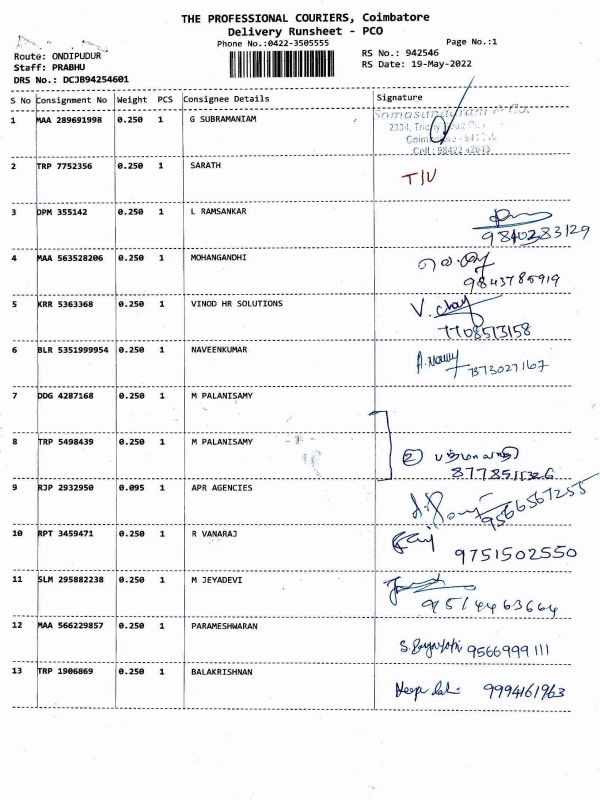 THE PROFESSIONAL COURIERS, Coimbatore
Delivery Runsheet - PCO
Phone No.:0422-3505555
Page No.:1
Route: ONDIPUDUR
RS No.: 942546
Staff: PRABHU
RS Date: 19-May-2022
DRS No.: DCJB94254601
S No Consignment No Weight PCS Consignee Details Signature
1 MAA 289691998 0.250 1 G SUBRAMANIAM
Somasundaram & Co.
2334, Trichy Road
Cell: 98422 42043
2 TRP 7752356 0.250 1 SARATH
T/V
3 DPM 355142 0.250 1 L RAMSANKAR
9840283129
4 MAA 563528206 0.250 1 MOHANGANDHI
9843785919
5 KRR 5363368 0.250 1 VINOD HR SOLUTIONS
7708513158
6 BLR 5351999954 0.250 1 NAVEENKUMAR
7 DDG 4287168 0.250 1 M PALANISAMY
8 TRP 5498439 0.250 1 M PALANISAMY
② பத்மாவதி
8778511326
9 RJP 2932950 0.095 1 APR AGENCIES
9566567255
10 RPT 3459471 0.250 1 R VANARAJ
9751502550
11 SLM 295882238 0.250 1 M JEYADEVI
12 MAA 566229857 0.250 1 PARAMESHWARAN
9566999111
13 TRP 1906869 0.250 1 BALAKRISHNAN
9994161963